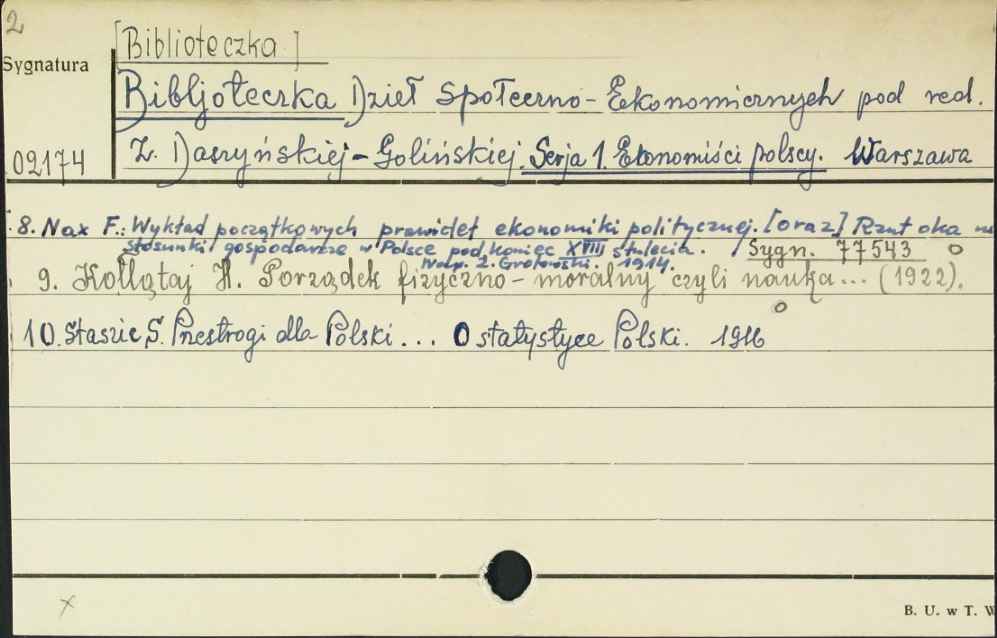 2
[Biblioteczka]
Sygnatura
Bibljoteczka Dzieł Społeczno-Ekonomicznych pod red.
02174 Z. Daszyńskiej-Golińskiej. Serja 1. Ekonomiści polscy. Warszawa
8. Nax F.: Wykład początkowych prawideł ekonomiki politycznej. [oraz] Rzut oka na
stosunki gospodarcze w Polsce pod koniec XVIII stulecia. Sygn. 77543
Wstęp. Z. Grotowski. 1914.
9. Kołłątaj H. Porządek fizyczno-moralny czyli nauka... (1922).
10. Staszic S. Przestrogi dla Polski... O statystyce Polski. 1916
x
B. U. w T. W